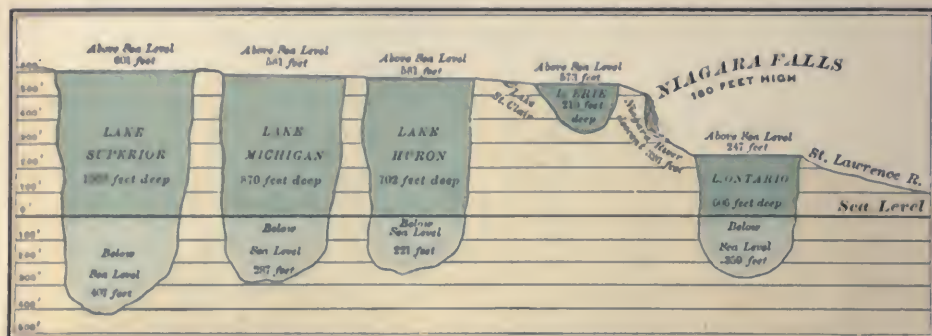 Above Sea Level
601 feet
LAKE
SUPERIOR
1008 feet deep
Below
Sea Level
407 feet
Above Sea Level
581 feet
LAKE
MICHIGAN
870 feet deep
Below
Sea Level
287 feet
Above Sea Level
581 feet
LAKE
HURON
702 feet deep
Below
Sea Level
221 feet
Lake
St. Clair
Above Sea Level
573 feet
L. ERIE
210 feet
deep
Niagara River
descent feet
NIAGARA FALLS
160 FEET HIGH
Above Sea Level
247 feet
L. ONTARIO
606 feet deep
Below
Sea Level
359 feet
St. Lawrence R.
Sea Level
600'
500'
400'
300'
200'
100'
0'
100'
200'
300'
400'
500'